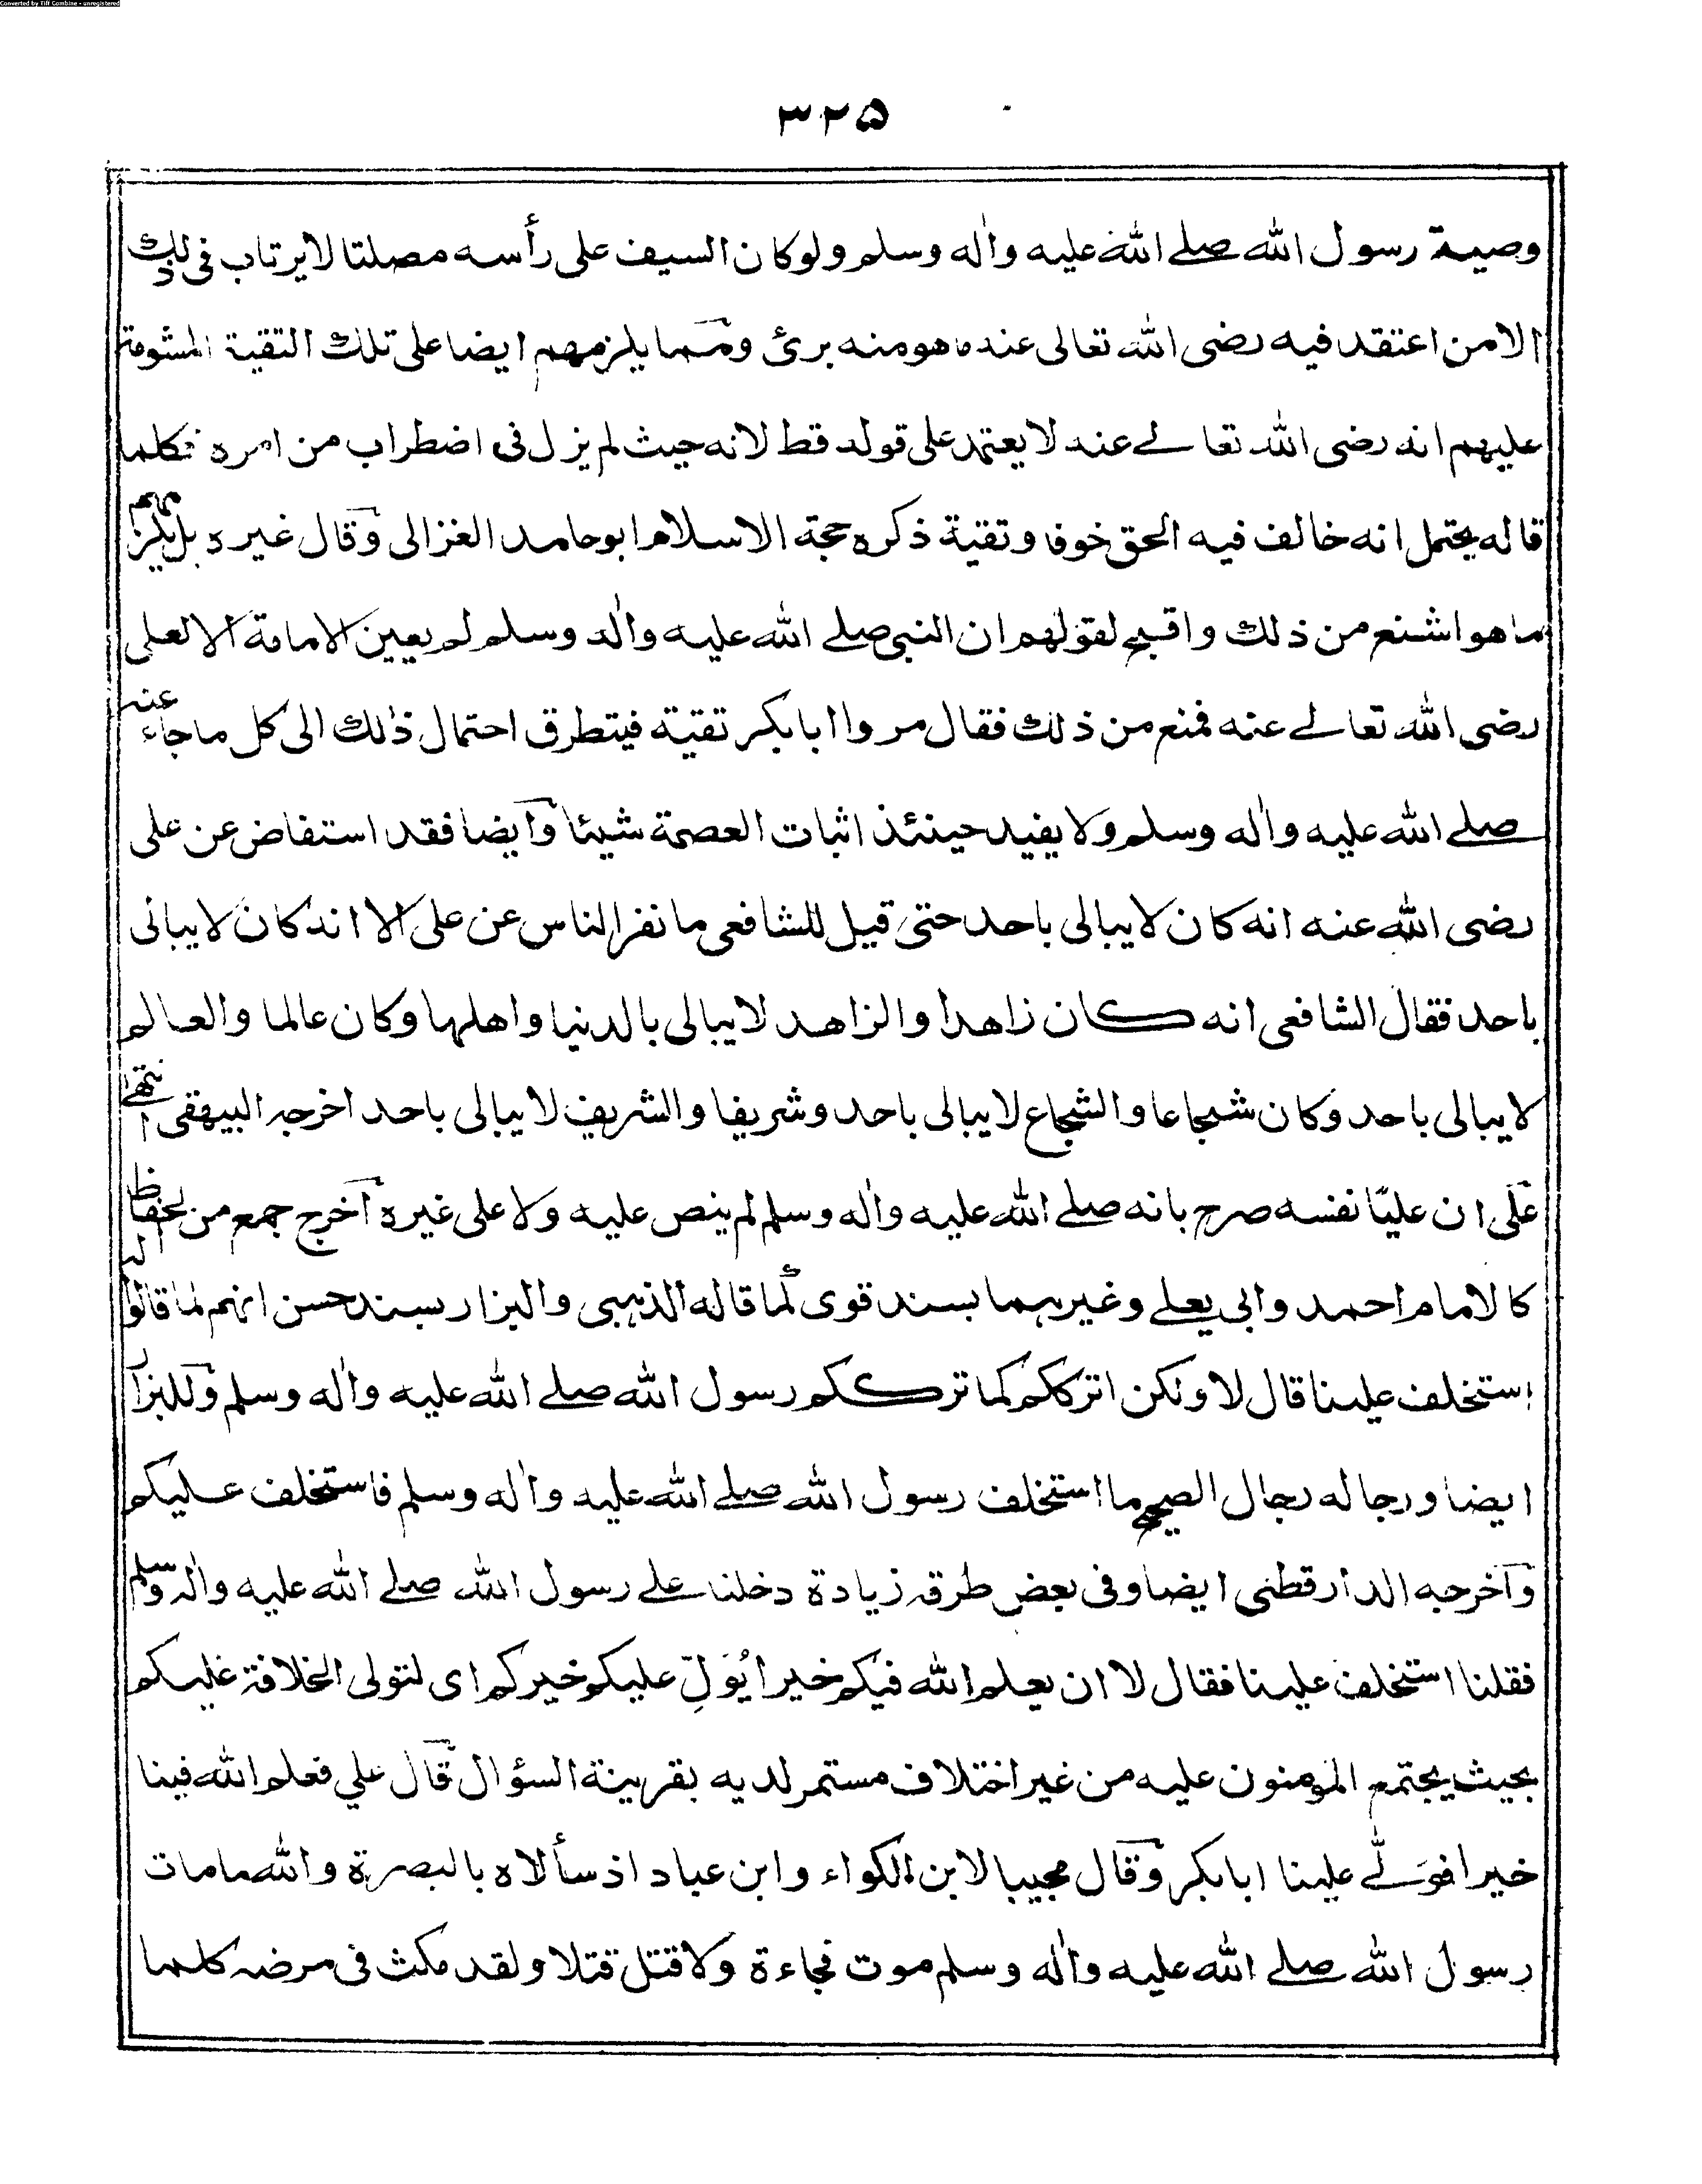 Converted by Tiff Combine - unregistered
٣٢٥
وصية رسول الله صلے الله عليه واٰله وسلم ولوكان السيف على رأسه مصلتا لايرتاب فى ذلك
الا من اعتقد فيه رضى الله تعالى عنه ما هو منه برئ ومما يلزمهم ايضا على تلك التقية المشومة
عليهم انه رضى الله تعالے عنه لا يعتمد على قوله قط لانه حيث لم يزل فى اضطراب من امره فكلما
قاله يحتمل انه خالف فيه الحق خوفا وتقية ذكره حجة الاسلام ابو حامد الغزالى وقال غيره بل يلزمهم
ما هو اشنع من ذلك واقبح لقولهم ان النبى صلے الله عليه واٰله وسلم لم يعين الامامة الا لعلى
رضى الله تعالے عنه فمنع من ذلك فقال مروا ابابكر تقية فيتطرق احتمال ذلك الى كل ما جاء عنه
صلے الله عليه واٰله وسلم ولا يفيد حينئذ اثبات العصمة شيئا وايضا فقد استفاض عن على
رضى الله عنه انه كان لايبالى باحد حتى قيل للشافعى ما نفر الناس عن على الا انه كان لايبالى
باحد فقال الشافعى انه كان زاهدا والزاهد لايبالى بالدنيا واهلها وكان عالما والعالم
لايبالى باحد وكان شجاعا والشجاع لايبالى باحد وشريفا والشريف لايبالى باحد اخرجه البيهقى انتهے
على ان عليّا نفسه صرح بانه صلے الله عليه واٰله وسلم لم ينص عليه ولا على غيره اخرج جمع من الحفاظ
كالامام احمد وابى يعلے وغيرهما بسند قوى كما قاله الذهبى والبزار بسند حسن انهم لما قالوا له
استخلف علينا قال لا ولكن اترككم كما ترككم رسول الله صلے الله عليه واٰله وسلم وللبزار
ايضا ورجاله رجال الصحيح ما استخلف رسول الله صلے الله عليه واٰله وسلم فاستخلف عليكم
واخرجه الدارقطنى ايضا وفى بعض طرقه زيادة دخلنا علے رسول الله صلے الله عليه واٰله وسلم
فقلنا استخلف علينا فقال لا ان يعلم الله فيكم خيرا يُوَلِّ عليكم خيركم اى لتولى الخلافة عليكم
بحيث يجتمع المومنون عليه من غير اختلاف مستمر لديه بقرينة السؤال قال علي فعلم الله فينا
خيرا فوَلّے علينا ابابكر وقال مجيبا لابن الكواء وابن عباد اذ سألاه بالبصرة والله ما مات
رسول الله صلے الله عليه واٰله وسلم موت فجاءة ولا قتل قتلا ولقد مكث فى مرضه كلما